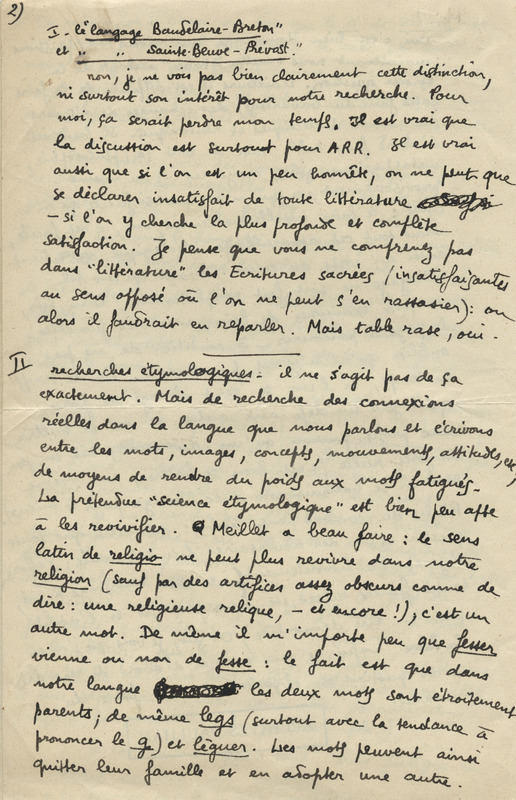 2)
I - le "langage Baudelaire-Breton"
et " " Sainte-Beuve - Prévost."
non, je ne vois pas bien clairement cette distinction,
ni surtout son intérêt pour notre recherche. Pour
moi, ça serait perdre mon temps. Il est vrai que
la discussion est surtout pour ARR. Il est vrai
aussi que si l'on est un peu honnête, on ne peut que
se déclarer insatisfait de toute littérature
- si l'on y cherche la plus profonde et complète
satisfaction. Je pense que vous ne comprenez pas
dans "littérature" les Ecritures sacrées (insatisfaisantes
au sens opposé où l'on ne peut s'en rassasier) : ou
alors il faudrait en reparler. Mais table rase, oui.
II recherches étymologiques - il ne s'agit pas de ça
exactement. Mais de recherche des connexions
réelles dans la langue que nous parlons et écrivons
entre les mots, images, concepts, mouvements, attitudes, etc,
de moyens de rendre du poids aux mots fatigués -
La prétendue "science étymologique" est bien peu apte
à les revivifier. Meillet a beau faire : le sens
latin de religio ne peut plus revivre dans notre
religion (sauf par des artifices assez obscurs comme de
dire : une religieuse relique, - et encore !), c'est un
autre mot. De même il m'importe peu que fesser
vienne ou non de fesse : le fait est que dans
notre langue les deux mots sont étroitement
parents ; de même legs (surtout avec la tendance à
prononcer le g) et léguer. Les mots peuvent ainsi
quitter leur famille et en adopter une autre.